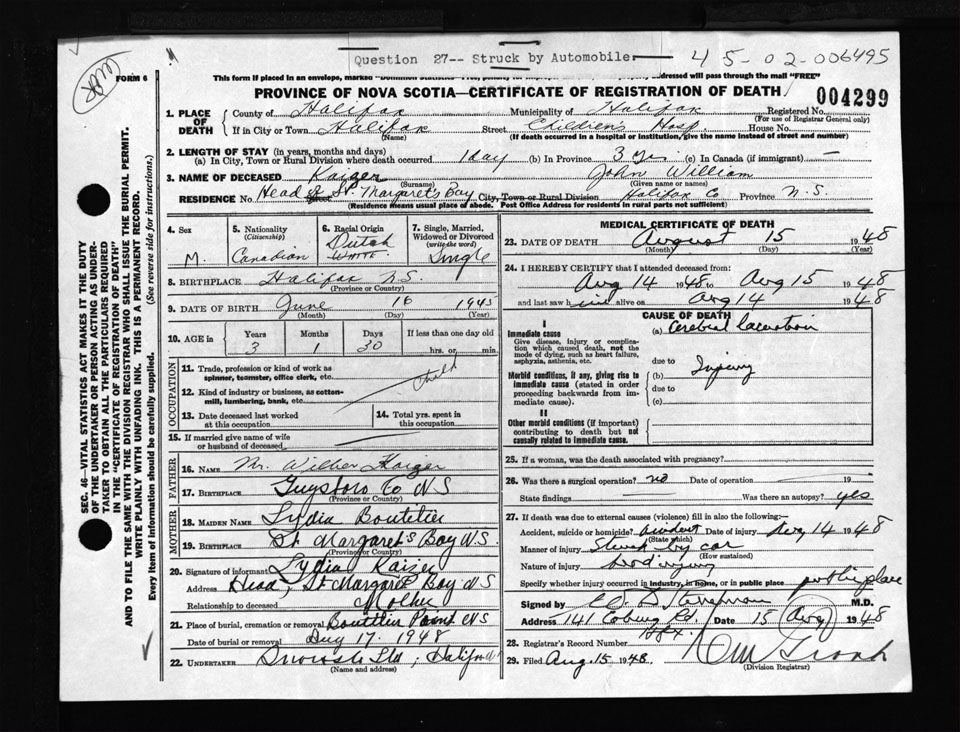 Question 27-- Struck by Automobile. 45-02-006495
FORM 6
This form if placed in an envelope, marked "Dominion Statistics-Free, addressed will pass through the mail "FREE"
PROVINCE OF NOVA SCOTIA—CERTIFICATE OF REGISTRATION OF DEATH
004299
1. PLACE OF DEATH
County of Halifax Municipality of Halifax Registered No.
(For use of Registrar General only)
If in City or Town Halifax Street Children's Hosp. House No.
(Name) (If death occurred in a hospital or institution, give the name instead of street and number)
2. LENGTH OF STAY (in years, months and days)
(a) In City, Town or Rural Division where death occurred 1 day (b) In Province 3 yrs (c) In Canada (if immigrant) —
3. NAME OF DECEASED Kaizer John William
(Surname) (Given name or names)
RESIDENCE No. Head of St. Margaret's Bay City, Town or Rural Division Halifax Co Province N.S.
(Residence means usual place of abode. Post Office Address for residents in rural parts not sufficient)
4. Sex
M.
5. Nationality
(Citizenship)
Canadian
6. Racial Origin
Dutch
WHITE
7. Single, Married, Widowed or Divorced
(write the word)
Single
8. BIRTHPLACE Halifax N.S.
(Province or Country)
9. DATE OF BIRTH June 16 1945
(Month) (Day) (Year)
10. AGE in
Years Months Days If less than one day old
3 1 30 hrs. or min.
OCCUPATION
11. Trade, profession or kind of work as spinner, teamster, office clerk, etc.
Child
12. Kind of industry or business, as cotton-mill, lumbering, bank, etc.
13. Date deceased last worked at this occupation
14. Total yrs. spent in this occupation
15. If married give name of wife or husband of deceased
FATHER
16. NAME Mr. Wilber Kaizer
17. BIRTHPLACE Guysboro Co N S
(Province or Country)
MOTHER
18. MAIDEN NAME Lydia Boutelier
19. BIRTHPLACE St. Margaret's Bay N.S.
(Province or Country)
20. Signature of informant Lydia Kaizer
Address Head, St Margaret Bay N S
Relationship to deceased Mother
21. Place of burial, cremation or removal Boutelier Point N S
Date of burial or removal Aug 17. 1948
22. UNDERTAKER Snow's Ltd, Halifax
(Name and address)
MEDICAL CERTIFICATE OF DEATH
23. DATE OF DEATH August 15 1948
(Month) (Day) (Year)
24. I HEREBY CERTIFY that I attended deceased from:
Aug 14 1948 to Aug 15 1948
and last saw him alive on Aug 14 1948
CAUSE OF DEATH
I
Immediate cause
Give disease, injury or complication which caused death, not the mode of dying, such as heart failure, asphyxia, asthenia, etc.
(a) Cerebral laceration
due to
Morbid conditions, if any, giving rise to immediate cause (stated in order proceeding backwards from immediate cause).
(b) Injury
due to
(c)
II
Other morbid conditions (if important) contributing to death but not causally related to immediate cause.
25. If a woman, was the death associated with pregnancy?
26. Was there a surgical operation? no Date of operation 19
State findings — Was there an autopsy? yes
27. If death was due to external causes (violence) fill in also the following:—
Accident, suicide or homicide? Accident Date of injury Aug 14 1948
(State which)
Manner of injury Struck by car
(How sustained)
Nature of injury
Specify whether injury occurred in industry, in home, or in public place public place
Signed by M.D.
Address 141 Coburg Rd. Date 15 Aug 1948
Hfx.
28. Registrar's Record Number
29. Filed Aug. 15 1948.
(Division Registrar)
SEC. 46—VITAL STATISTICS ACT MAKES IT THE DUTY OF THE UNDERTAKER OR PERSON ACTING AS UNDERTAKER TO OBTAIN ALL THE PARTICULARS REQUIRED IN THE "CERTIFICATE OF REGISTRATION OF DEATH"
AND TO FILE THE SAME WITH THE DIVISION REGISTRAR WHO SHALL ISSUE THE BURIAL PERMIT.
WRITE PLAINLY WITH UNFADING INK. THIS IS A PERMANENT RECORD.
Every item of information should be carefully supplied. (See reverse side for instructions.)